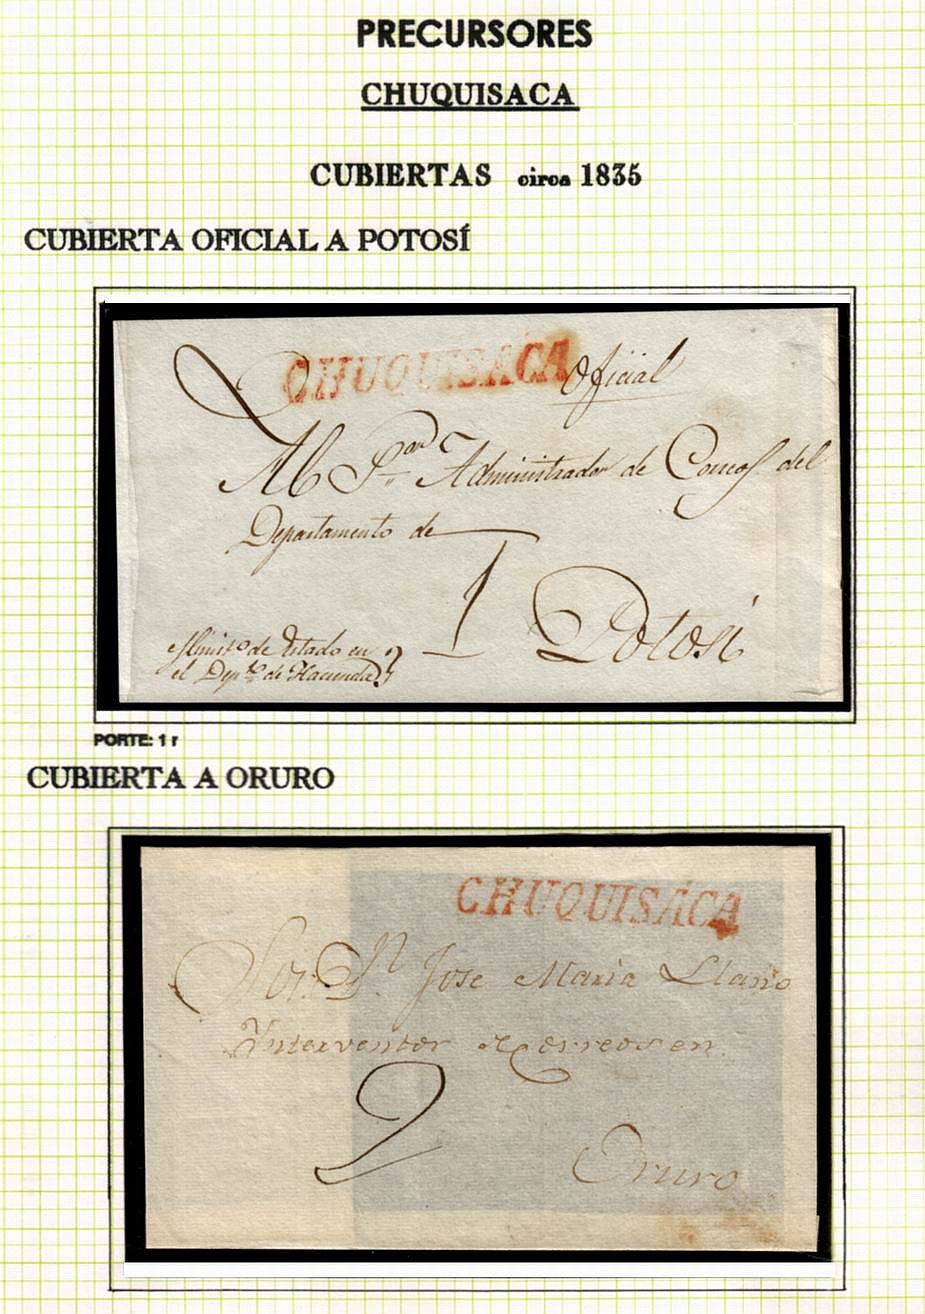 PRECURSORES
CHUQUISACA
CUBIERTAS circa 1835
CUBIERTA OFICIAL A POTOSÍ
CHUQUISACA Oficial
Al Sor. Administrador de Correos. del
Departamento de
1 Potosi
Minist.o de Estado en
el Dep.to de Hacienda
PORTE: 1 r
CUBIERTA A ORURO
CHUQUISACA
Sor. D.n Jose Maria Llano
Interventor de Correos en
2
Oruro